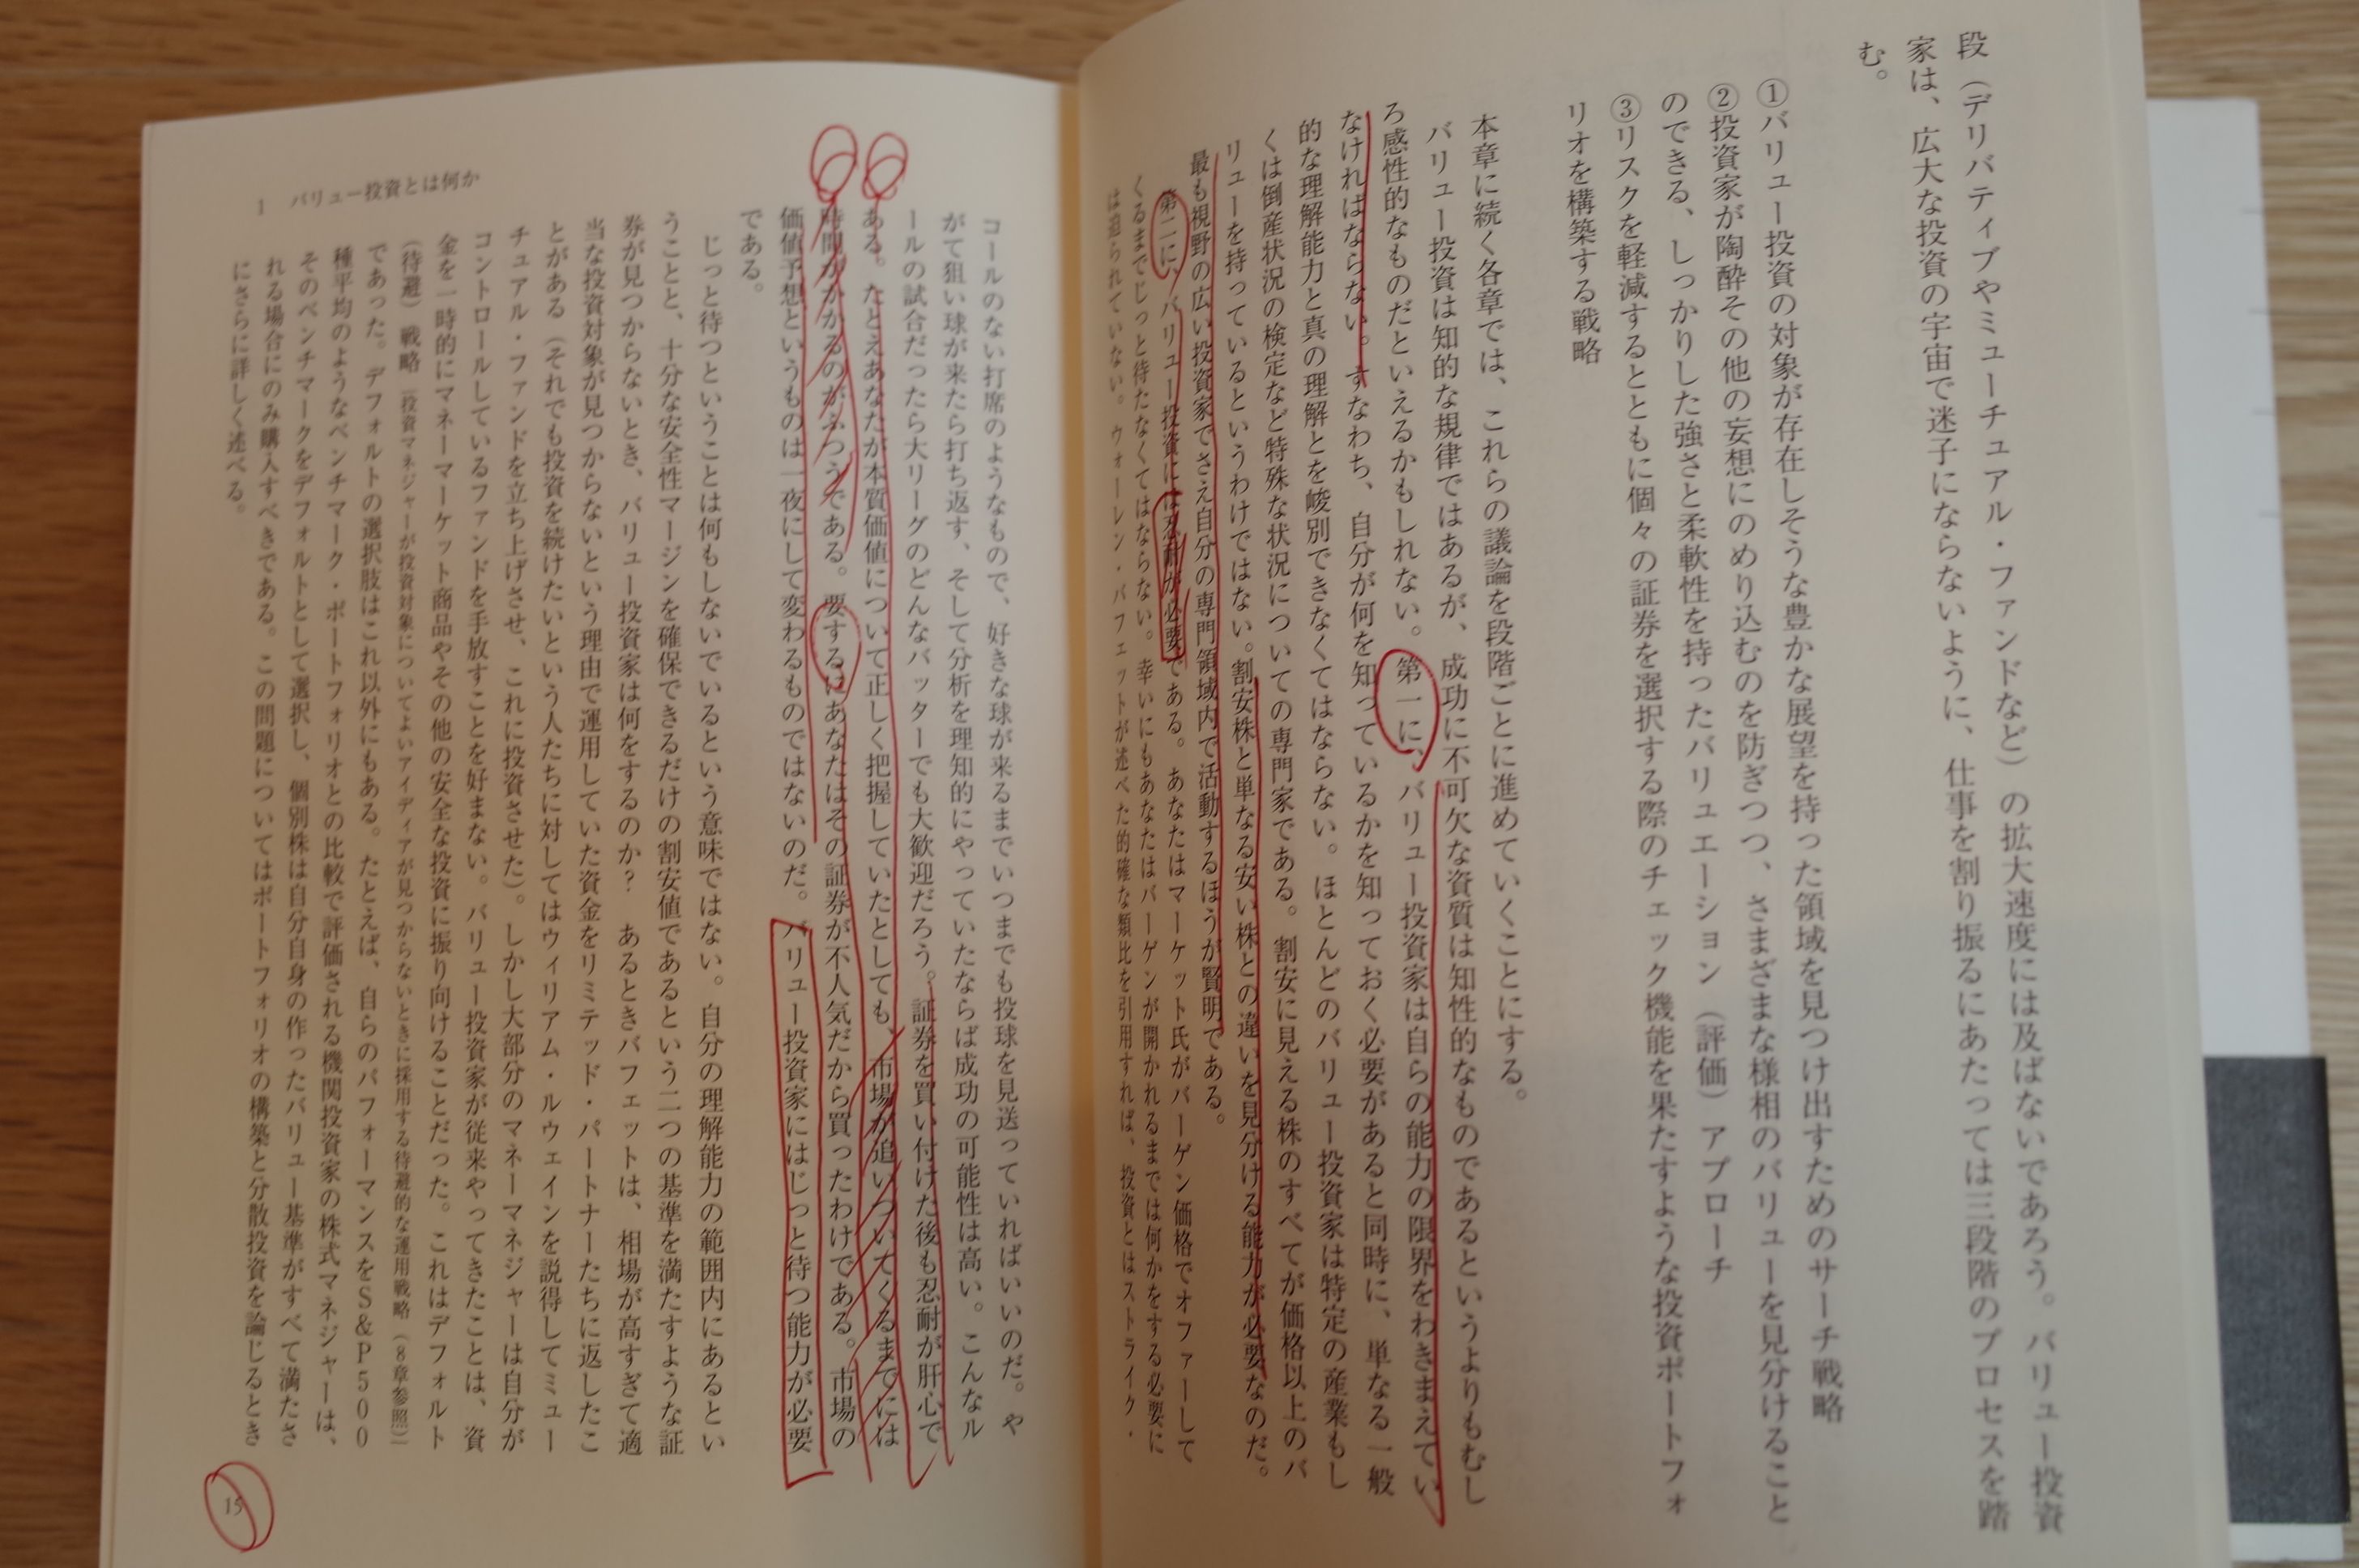 段（デリバティブやミューチュアル・ファンドなど）の拡大速度には及ばないであろう。バリュー投資
家は、広大な投資の宇宙で迷子にならないように、仕事を割り振るにあたっては三段階のプロセスを踏
む。
①バリュー投資の対象が存在しそうな豊かな展望を持った領域を見つけ出すためのサーチ戦略
②投資家が陶酔その他の妄想にのめり込むのを防ぎつつ、さまざまな様相のバリューを見分けること
のできる、しっかりした強さと柔軟性を持ったバリュエーション（評価）アプローチ
③リスクを軽減するとともに個々の証券を選択する際のチェック機能を果たすような投資ポートフォ
リオを構築する戦略
本章に続く各章では、これらの議論を段階ごとに進めていくことにする。
バリュー投資は知的な規律ではあるが、成功に不可欠な資質は知性的なものであるというよりもむし
ろ感性的なものだといえるかもしれない。第一に、バリュー投資家は自らの能力の限界をわきまえてい
なければならない。すなわち、自分が何を知っているかを知っておく必要があると同時に、単なる一般
的な理解能力と真の理解とを峻別できなくてはならない。ほとんどのバリュー投資家は特定の産業もし
くは倒産状況の検定など特殊な状況についての専門家である。割安に見える株のすべてが価格以上のバ
リューを持っているというわけではない。割安株と単なる安い株との違いを見分ける能力が必要なのだ。
最も視野の広い投資家でさえ自分の専門領域内で活動するほうが賢明である。
第二に、バリュー投資には忍耐が必要である。あなたはマーケット氏がバーゲン価格でオファーして
くるまでじっと待たなくてはならない。幸いにもあなたはバーゲンが開かれるまでは何かをする必要に
は迫られていない。ウォーレン・バフェットが述べた的確な類比を引用すれば、投資とはストライク・
コールのない打席のようなもので、好きな球が来るまでいつまでも投球を見送っていればいいのだ。や
がて狙い球が来たら打ち返す、そして分析を理知的にやっていたならば成功の可能性は高い。こんなル
ールの試合だったら大リーグのどんなバッターでも大歓迎だろう。証券を買い付けた後も忍耐が肝心で
ある。たとえあなたが本質価値について正しく把握していたとしても、市場が追いついてくるまでには
時間がかかるのがふつうである。要するにあなたはその証券が不人気だから買ったわけである。市場の
価値予想というものは一夜にして変わるものではないのだ。バリュー投資家にはじっと待つ能力が必要
である。
じっと待つということは何もしないでいるという意味ではない。自分の理解能力の範囲内にあるとい
うことと、十分な安全性マージンを確保できるだけの割安値であるという二つの基準を満たすような証
券が見つからないとき、バリュー投資家は何をするのか？　あるときバフェットは、相場が高すぎて適
当な投資対象が見つからないという理由で運用していた資金をリミテッド・パートナーたちに返したこ
とがある（それでも投資を続けたいという人たちに対してはウィリアム・ルウェインを説得してミュー
チュアル・ファンドを立ち上げさせ、これに投資させた）。しかし大部分のマネーマネジャーは自分が
コントロールしているファンドを手放すことを好まない。バリュー投資家が従来やってきたことは、資
金を一時的にマネーマーケット商品やその他の安全な投資に振り向けることだった。これはデフォルト
（待避）戦略［投資マネジャーが投資対象についてよいアイディアが見つからないときに採用する待避的な運用戦略（8章参照）］
であった。デフォルトの選択肢はこれ以外にもある。たとえば、自らのパフォーマンスをS＆P500
種平均のようなベンチマーク・ポートフォリオとの比較で評価される機関投資家の株式マネジャーは、
そのベンチマークをデフォルトとして選択し、個別株は自分自身の作ったバリュー基準がすべて満たさ
れる場合にのみ購入すべきである。この問題についてはポートフォリオの構築と分散投資を論じるとき
にさらに詳しく述べる。
1　バリュー投資とは何か
15